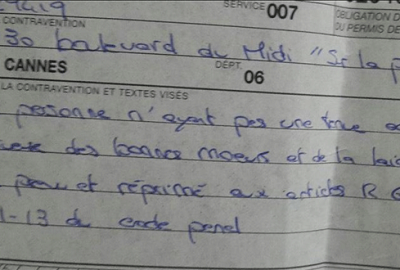 SERVICE 007
CONTRAVENTION
OBLIGATION D
DU PERMIS DE
30 boulevard du Midi "Sr la p
CANNES
DÉPT. 06
LA CONTRAVENTION ET TEXTES VISÉS
personne n'ayant pas une tenue
des bonnes moeurs et de la laic
prévu et réprimé aux articles R 6
1-13 du code penal